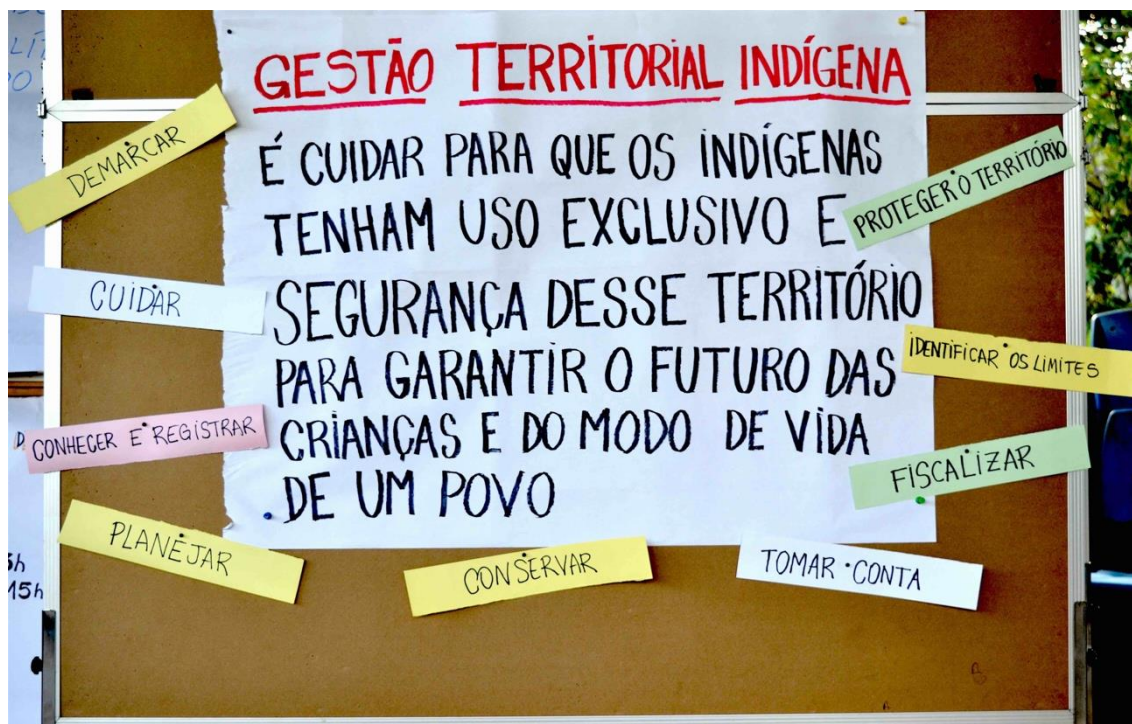 GESTÃO TERRITORIAL INDÍGENA
É CUIDAR PARA QUE OS INDÍGENAS
TENHAM USO EXCLUSIVO E
SEGURANÇA DESSE TERRITÓRIO
PARA GARANTIR O FUTURO DAS
CRIANÇAS E DO MODO DE VIDA
DE UM POVO
DEMARCAR
CUIDAR
CONHECER E REGISTRAR
PLANEJAR
CONSERVAR
TOMAR CONTA
FISCALIZAR
IDENTIFICAR OS LIMITES
PROTEGER O TERRITÓRIO
15h